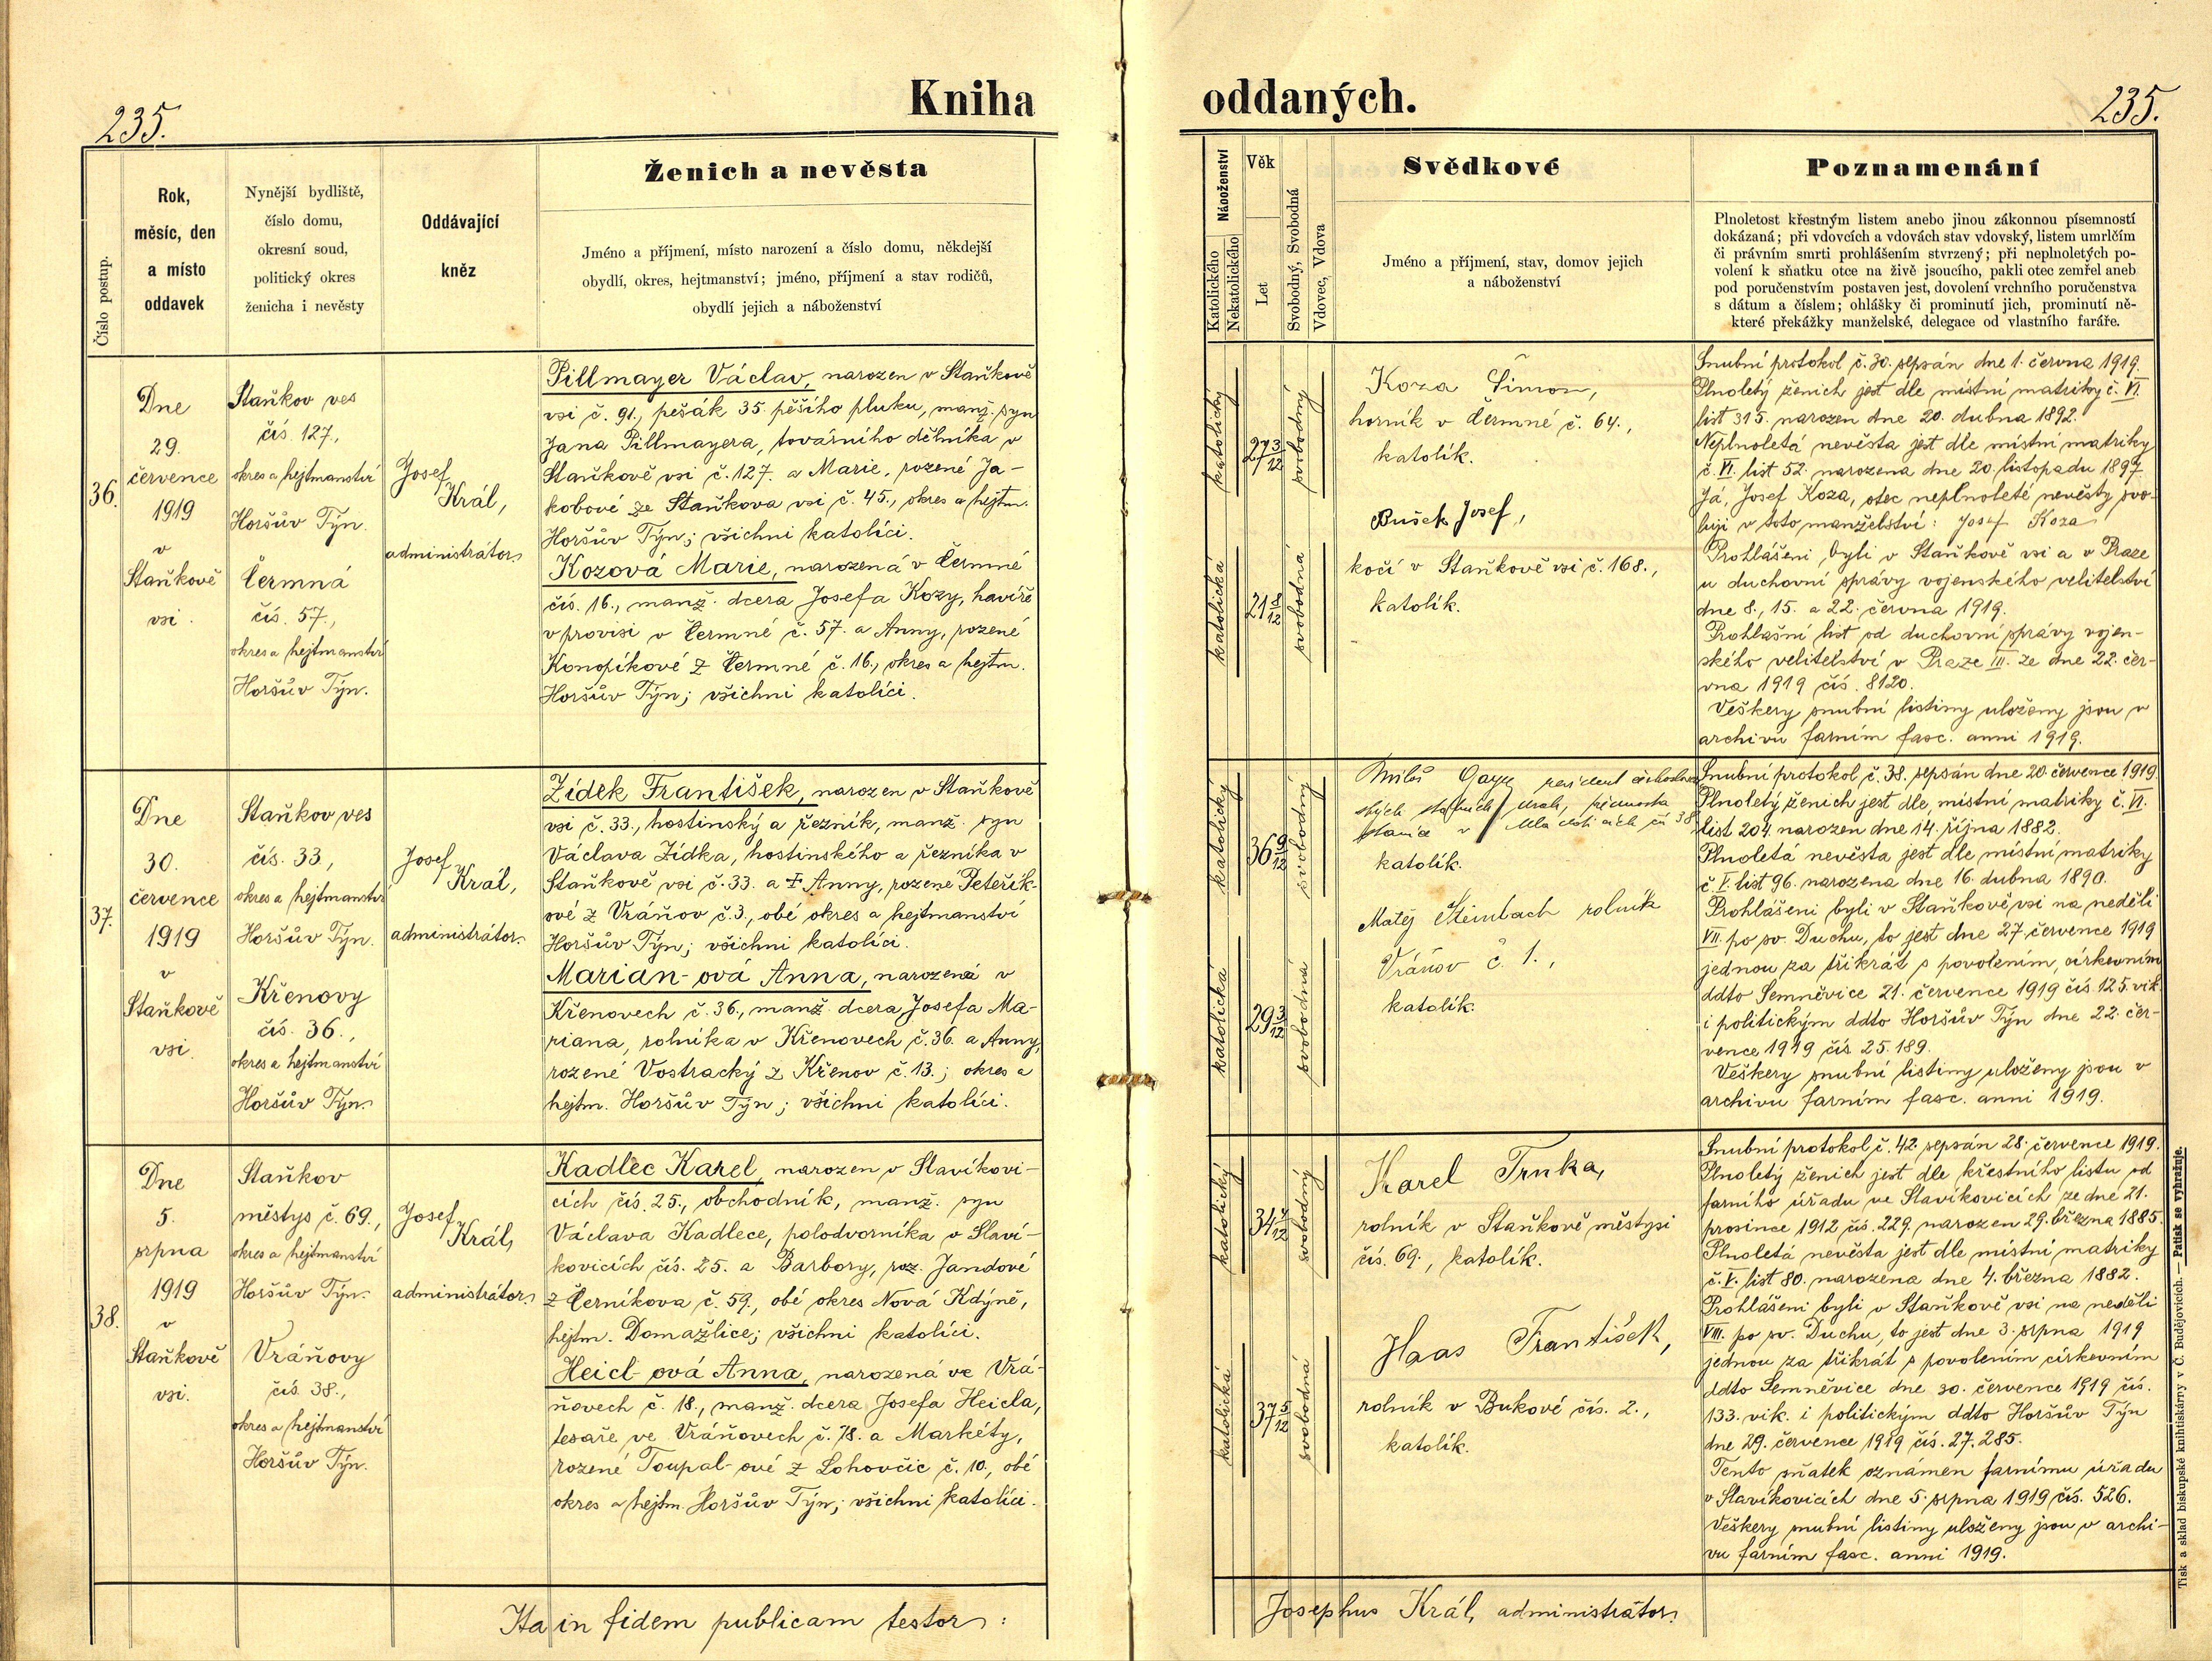 235.
Kniha
oddaných.
235.
Číslo postup.
Rok,
měsíc, den
a místo
oddavek
Nynější bydliště,
číslo domu,
okresní soud,
politický okres
ženicha i nevěsty
Oddávající
kněz
Ženich a nevěsta
Jméno a příjmení, místo narození a číslo domu, někdejší
obydlí, okres, hejtmanství; jméno, příjmení a stav rodičů,
obydlí jejich a náboženství
Náboženství
Katolického
Nekatolického
Věk
Let
Svobodný, Svobodná
Vdovec, Vdova
Svědkové
Jméno a příjmení, stav, domov jejich
a náboženství
Poznamenání
Plnoletost křestným listem anebo jinou zákonnou písemností
dokázaná; při vdovcích a vdovách stav vdovský, listem umrlčím
či právním smrti prohlášením stvrzený; při neplnoletých po-
volení k sňatku otce na živě jsoucího, pakli otec zemřel aneb
pod poručenstvím postaven jest, dovolení vrchního poručenstva
s dátum a číslem; ohlášky či prominutí jich, prominutí ně-
které překážky manželské, delegace od vlastního faráře.
36.
Dne
29.
července
1919
v
Staňkově
vsi.
Staňkov ves
čís. 127.,
okres a hejtmanství
Horšův Týn.
Čermná
čís. 57.,
okres a hejtmanství
Horšův Týn.
Josef
Král,
administrátor.
Pillmayer Václav, narozen v Staňkově
vsi č. 91., pěšák 35. pěšího pluku, manž. syn
Jana Pillmayera, továrního dělníka v
Staňkově vsi č. 127. a Marie, rozené Ja-
kobové ze Staňkova vsi č. 45., okres a hejtm.
Horšův Týn; všichni katolíci.
Kozová Marie, narozená v Čermné
čís. 16., manž. dcera Josefa Kozy, havíře
v provisi v Čermné č. 57. a Anny, rozené
Konopíkové z Čermné č. 16., okres a hejtm.
Horšův Týn; všichni katolíci.
katolický
27 3/12
svobodný
katolická
21 8/12
svobodná
Koza Šimon,
horník v Čermné č. 64.,
katolík.
Bušek Josef,
kočí v Staňkově vsi č. 168.,
katolík.
Snubní protokol č. 30. sepsán dne 1. června 1919.
Plnoletý ženich jest dle místní matriky č. VI.
list 315. narozen dne 20. dubna 1892.
Neplnoletá nevěsta jest dle místní matriky
č. VI. list 52. narozena dne 20. listopadu 1897.
Já, Josef Koza, otec neplnoleté nevěsty svo-
luji v toto manželství: Josef Koza
Prohlášeni byli v Staňkově vsi a v Praze
u duchovní správy vojenského velitelství
dne 8., 15. a 22. června 1919.
Prohlašní list od duchovní správy vojen-
ského velitelství v Praze III. ze dne 22. čer-
vna 1919 čís. 8120.
Veškery snubní listiny uloženy jsou v
archivu farním fasc. anni 1919.
37.
Dne
30.
července
1919
v
Staňkově
vsi.
Staňkov ves
čís. 33.,
okres a hejtmanství
Horšův Týn.
Křenovy
čís. 36.,
okres a hejtmanství
Horšův Týn.
Josef
Král,
administrátor.
Zídek František, narozen v Staňkově
vsi č. 33., hostinský a řezník, manž. syn
Václava Zídka, hostinského a řezníka v
Staňkově vsi č. 33. a † Anny, rozené Peteřík-
ové z Vráňov č. 3., obé okres a hejtmanství
Horšův Týn; všichni katolíci.
Marian-ová Anna, narozená v
Křenovech č. 36., manž. dcera Josefa Ma-
riana, rolníka v Křenovech č. 36. a Anny,
rozené Vostracký z Křenov č. 13.; okres a
hejtm. Horšův Týn; všichni katolíci.
katolický
36 9/12
svobodný
katolická
29 3/12
svobodná
státních drah,
stanice v čís 38
katolík.
Matěj Steinbach rolník
Vráňov č. 1.,
katolík.
Snubní protokol č. 38. sepsán dne 20. července 1919.
Plnoletý ženich jest dle místní matriky č. VI.
list 204. narozen dne 14. října 1882.
Plnoletá nevěsta jest dle místní matriky
č. V. list 96. narozena dne 16. dubna 1890.
Prohlášeni byli v Staňkově vsi na neděli
VII. po sv. Duchu, to jest dne 27. července 1919
jednou za třikrát s povolením, církevním
ddto Semněvice 21. července 1919 čís. 125. vik.
i politickým ddto Horšův Týn dne 22. čer-
vence 1919 čís. 25.189.
Veškery snubní listiny uloženy jsou v
archivu farním fasc. anni 1919.
38.
Dne
5.
srpna
1919
v
Staňkově
vsi.
Staňkov
městys č. 69.,
okres a hejtmanství
Horšův Týn.
Vráňovy
čís. 38.,
okres a hejtmanství
Horšův Týn.
Josef
Král,
administrátor.
Kadlec Karel, narozen v Slavíkovi-
cích čís. 25., obchodník, manž. syn
Václava Kadlece, polodvorníka v Slaví-
kovicích čís. 25. a Barbory, roz. Jandové
z Černíkova č. 59., obé okres Nová Kdýně,
hejtm. Domažlice; všichni katolíci.
Heicl-ová Anna, narozená ve Vrá-
ňovech č. 18., manž. dcera Josefa Heicla,
tesaře ve Vráňovech č. 78. a Markéty,
rozené Toupal-ové z Lohovčic č. 10., obé
okres a hejtm. Horšův Týn; všichni katolíci.
katolický
34 4/12
svobodný
katolická
37 5/12
svobodná
Karel Trnka,
rolník v Staňkově městysi
čís. 69., katolík.
Haas František,
rolník v Bukové čís. 2.,
katolík.
Snubní protokol č. 42. sepsán 28. července 1919.
Plnoletý ženich jest dle křestního listu od
farního úřadu ve Slavíkovicích ze dne 21.
prosince 1912 čís. 229. narozen 29. března 1885.
Plnoletá nevěsta jest dle místní matriky
č. V. list 80. narozena dne 4. března 1882.
Prohlášeni byli v Staňkově vsi na neděli
VIII. po sv. Duchu, to jest dne 3. srpna 1919
jednou za třikrát s povolením církevním
ddto Semněvice dne 30. července 1919 čís.
133. vik. i politickým ddto Horšův Týn
dne 29. července 1919 čís. 27.285.
Tento sňatek oznámen farnímu úřadu
v Slavíkovicích dne 5. srpna 1919 čís. 526.
Veškery snubní listiny uloženy jsou v archi-
vu farním fasc. anni 1919.
Ita in fidem publicam testor:
Josephus Král, administrátor.
Tisk a sklad biskupské knihtiskárny v Č. Budějovicích. — Patisk se vyhražuje.